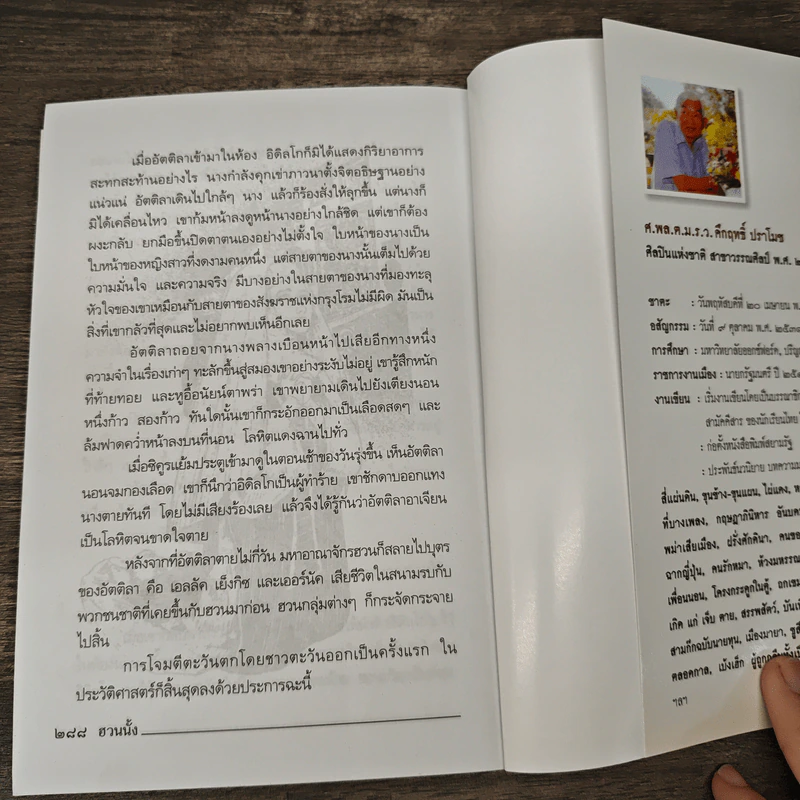 เมื่ออัตติลาเข้ามาในห้อง อิดิลโกก็มิได้แสดงกิริยาอาการ
สะทกสะท้านอย่างไร นางกำลังคุกเข่าภาวนาตั้งจิตอธิษฐานอย่าง
แน่วแน่ อัตติลาเดินไปใกล้ๆ นาง แล้วก็ร้องสั่งให้ลุกขึ้น แต่นางก็
มิได้เคลื่อนไหว เขาก้มหน้าลงดูหน้านางอย่างใกล้ชิด แต่เขาก็ต้อง
ผงะกลับ ยกมือขึ้นปิดตาตนเองอย่างไม่ตั้งใจ ใบหน้าของนางเป็น
ใบหน้าของหญิงสาวที่งดงามคนหนึ่ง แต่สายตาของนางนั้นเต็มไปด้วย
ความมั่นใจ และความจริง มีบางอย่างในสายตาของนางที่มองทะลุ
หัวใจของเขาเหมือนกับสายตาของสังฆราชแห่งกรุงโรมไม่มีผิด มันเป็น
สิ่งที่เขากลัวที่สุดและไม่อยากพบเห็นอีกเลย
อัตติลาถอยจากนางพลางเบือนหน้าไปเสียอีกทางหนึ่ง
ความจำในเรื่องเก่าๆ ทะลักขึ้นสู่สมองเขาอย่างระงับไม่อยู่ เขารู้สึกหนัก
ที่ท้ายทอย และหูอื้อนัยน์ตาพร่า เขาพยายามเดินไปยังเตียงนอน
หนึ่งก้าว สองก้าว ทันใดนั้นเขาก็กระอักออกมาเป็นเลือดสดๆ และ
ล้มฟาดคว่ำหน้าลงบนที่นอน โลหิตแดงฉานไปทั่ว
เมื่อซิคูรแย้มประตูเข้ามาดูในตอนเช้าของวันรุ่งขึ้น เห็นอัตติลา
นอนจมกองเลือด เขาก็นึกว่าอิดิลโกเป็นผู้ทำร้าย เขาชักดาบออกแทง
นางตายทันที โดยไม่มีเสียงร้องเลย แล้วจึงได้รู้กันว่าอัตติลาอาเจียน
เป็นโลหิตจนขาดใจตาย
หลังจากที่อัตติลาตายไม่กี่วัน มหาอาณาจักรฮวนก็สลายไปบุตร
ของอัตติลา คือ เอลลัค เย็งกิซ และเออร์นัค เสียชีวิตในสนามรบกับ
พวกชนชาติที่เคยขึ้นกับฮวนมาก่อน ฮวนกลุ่มต่างๆ ก็กระจัดกระจาย
ไปสิ้น
การโจมตีตะวันตกโดยชาวตะวันออกเป็นครั้งแรก ใน
ประวัติศาสตร์ก็สิ้นสุดลงด้วยประการฉะนี้
๒๘๘ ฮวนนั้ง
ศ.พล.ต.ม.ร.ว.คึกฤทธิ์ ปราโมช
ศิลปินแห่งชาติ สาขาวรรณศิลป์ พ.ศ. ๒
ชาตะ : วันพฤหัสบดีที่ ๒๐ เมษายน พ.
อสัญกรรม : วันที่ ๙ ตุลาคม พ.ศ. ๒๕๓๘
การศึกษา : มหาวิทยาลัยออกซ์ฟอร์ด, ปริญ
ราชการงานเมือง : นายกรัฐมนตรี ปี ๒๕๑
งานเขียน : เริ่มงานเขียนโดยเป็นบรรณาธิก
สามัคคีสาร ของนักเรียนไทย
: ก่อตั้งหนังสือพิมพ์สยามรัฐ
: ประพันธ์นวนิยาย บทความม
สี่แผ่นดิน, ขุนช้าง-ขุนแผน, ไผ่แดง, ห
ที่บางเพลง, กฤษฎาภินิหาร อันบด
พม่าเสียเมือง, ฝรั่งศักดินา, คนขอ
ฉากญี่ปุ่น, คนรักหมา, ห้วงมหรรณ
เพื่อนนอน, โครงกระดูกในตู้, ถกเขม
เกิด แก่ เจ็บ ตาย, สรรพสัตว์, บันเ
สามก๊กฉบับนายทุน, เมืองมายา, ซูสี
ตลอดกาล, เบ้งเฮ็ก ผู้ถูก
ฯลฯ